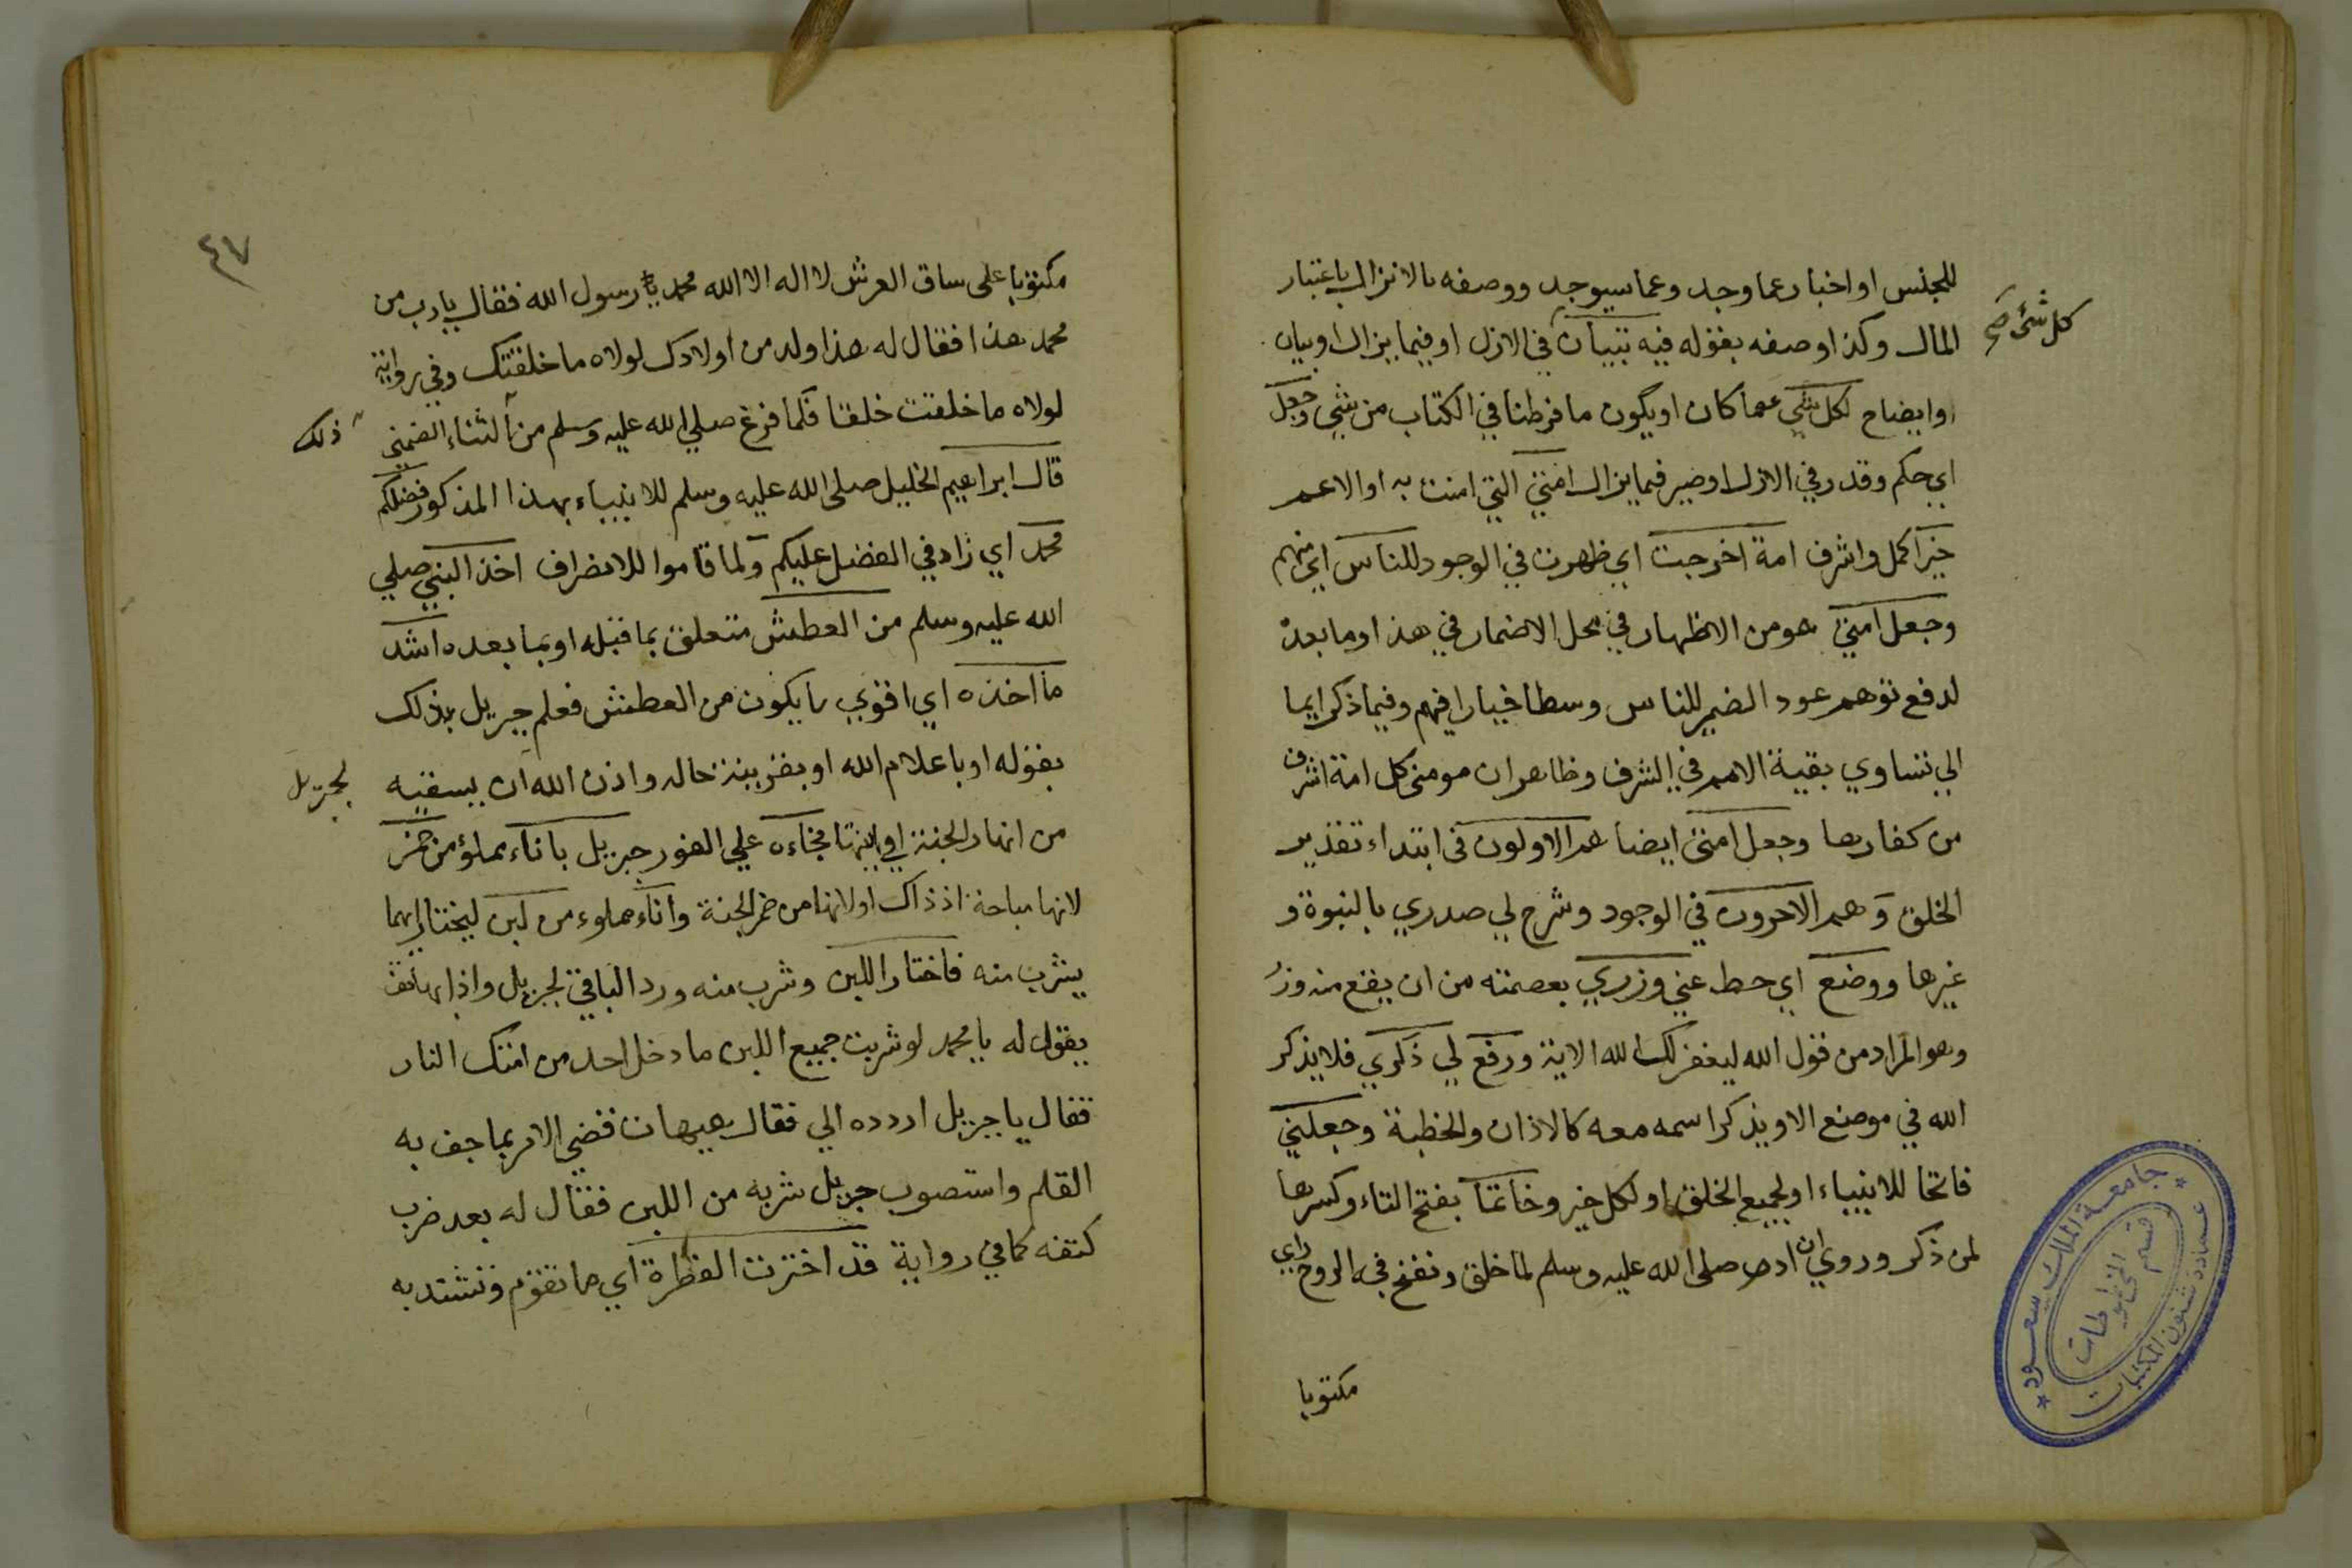 للجنس او اخبار عما وجد وعما سيوجد ووصفه بالانزال باعتبار
المآل وكذا وصفه بقوله فيه تبيان في الازل او فيما يزال او بيان
كل شئ صح
او ايضاح لكل شي عما كان او يكون ما فرطنا في الكتاب من شي وجعل
اي حكم وقدر في الازل او صير فيما يزال امتي التي امنت به او الاعم
خير اكمل واشرف امة اخرجت اي ظهرت في الوجود للناس اي منهم
وجعل امتي هو من الاظهار في محل الاضمار في هذا وما بعده
لدفع توهم عود الضمير للناس وسطا خيارا فيهم وفيما ذكر ايما
الي تساوي بقية الامم في الشرف وظاهر ان مومني كل امة اشرف
من كفارها وجعل امتي ايضا هم الاولون في ابتداء تقدير
الخلق وهم الاخرون في الوجود وشرح لي صدري بالنبوة و
غيرها ووضع اي حط عني وزري بعصمته من ان يقع منه وزر
وهو المراد من قول الله ليغفر لك الله الاية ورفع لي ذكري فلا يذكر
الله في موضع الا ويذكر اسمه معه كالاذان والخطبة وجعلني
فاتحا للانبياء او لجميع الخلق او لكل خير وخاتما بفتح التاء وكسرها
لمن ذكر وروي ان ادم صلى الله عليه وسلم لما خلق ونفخ فيه الروح راي
مكتوبا
جامعة الملك سعود
عمادة شئون المكتبات
قسم المخطوطات
٤٧
مكتوبا على ساق العرش لا اله الا الله محمد رسول الله فقال يا رب من
محمد هذا فقال له هذا ولد من اولادك لولاه ما خلقتك وفي رواية
لولاه ما خلقت خلقا فلما فرغ صلي الله عليه وسلم من الثناء الضمني
ذلك
قال ابراهيم الخليل صلى الله عليه وسلم للانبياء بهذا المذكور فضلكم
محمد اي زاد في الفضل عليكم ولما قاموا للانصراف اخذ النبي صلي
الله عليه وسلم من العطش متعلق بما قبله او بما بعده اشد
ما اخذه اي اقوي ما يكون من العطش فعلم جبريل بذلك
بقوله او باعلام الله او بقرينة حاله واذن الله ان يسقيه
لجبريل
من انهار الجنة او انيتها فجاءه علي الفور جبريل باناء مملؤ من خمر
لانها مباحة اذ ذاك او لانها من خمر الجنة واناء مملوء من لبن ليختار ايهما
يشرب منه فاختار اللبن وشرب منه ورد الباقي لجبريل واذا بهاتف
يقول له يا محمد لو شربت جميع اللبن ما دخل احد من امتك النار
فقال يا جبريل اردده الي فقال هيهات قضي الامر بما جف به
القلم واستصوب جبريل شربه من اللبن فقال له بعد ضرب
كتفه كما في رواية قد اخترت الفطرة اي ما تقوم وتشتد به